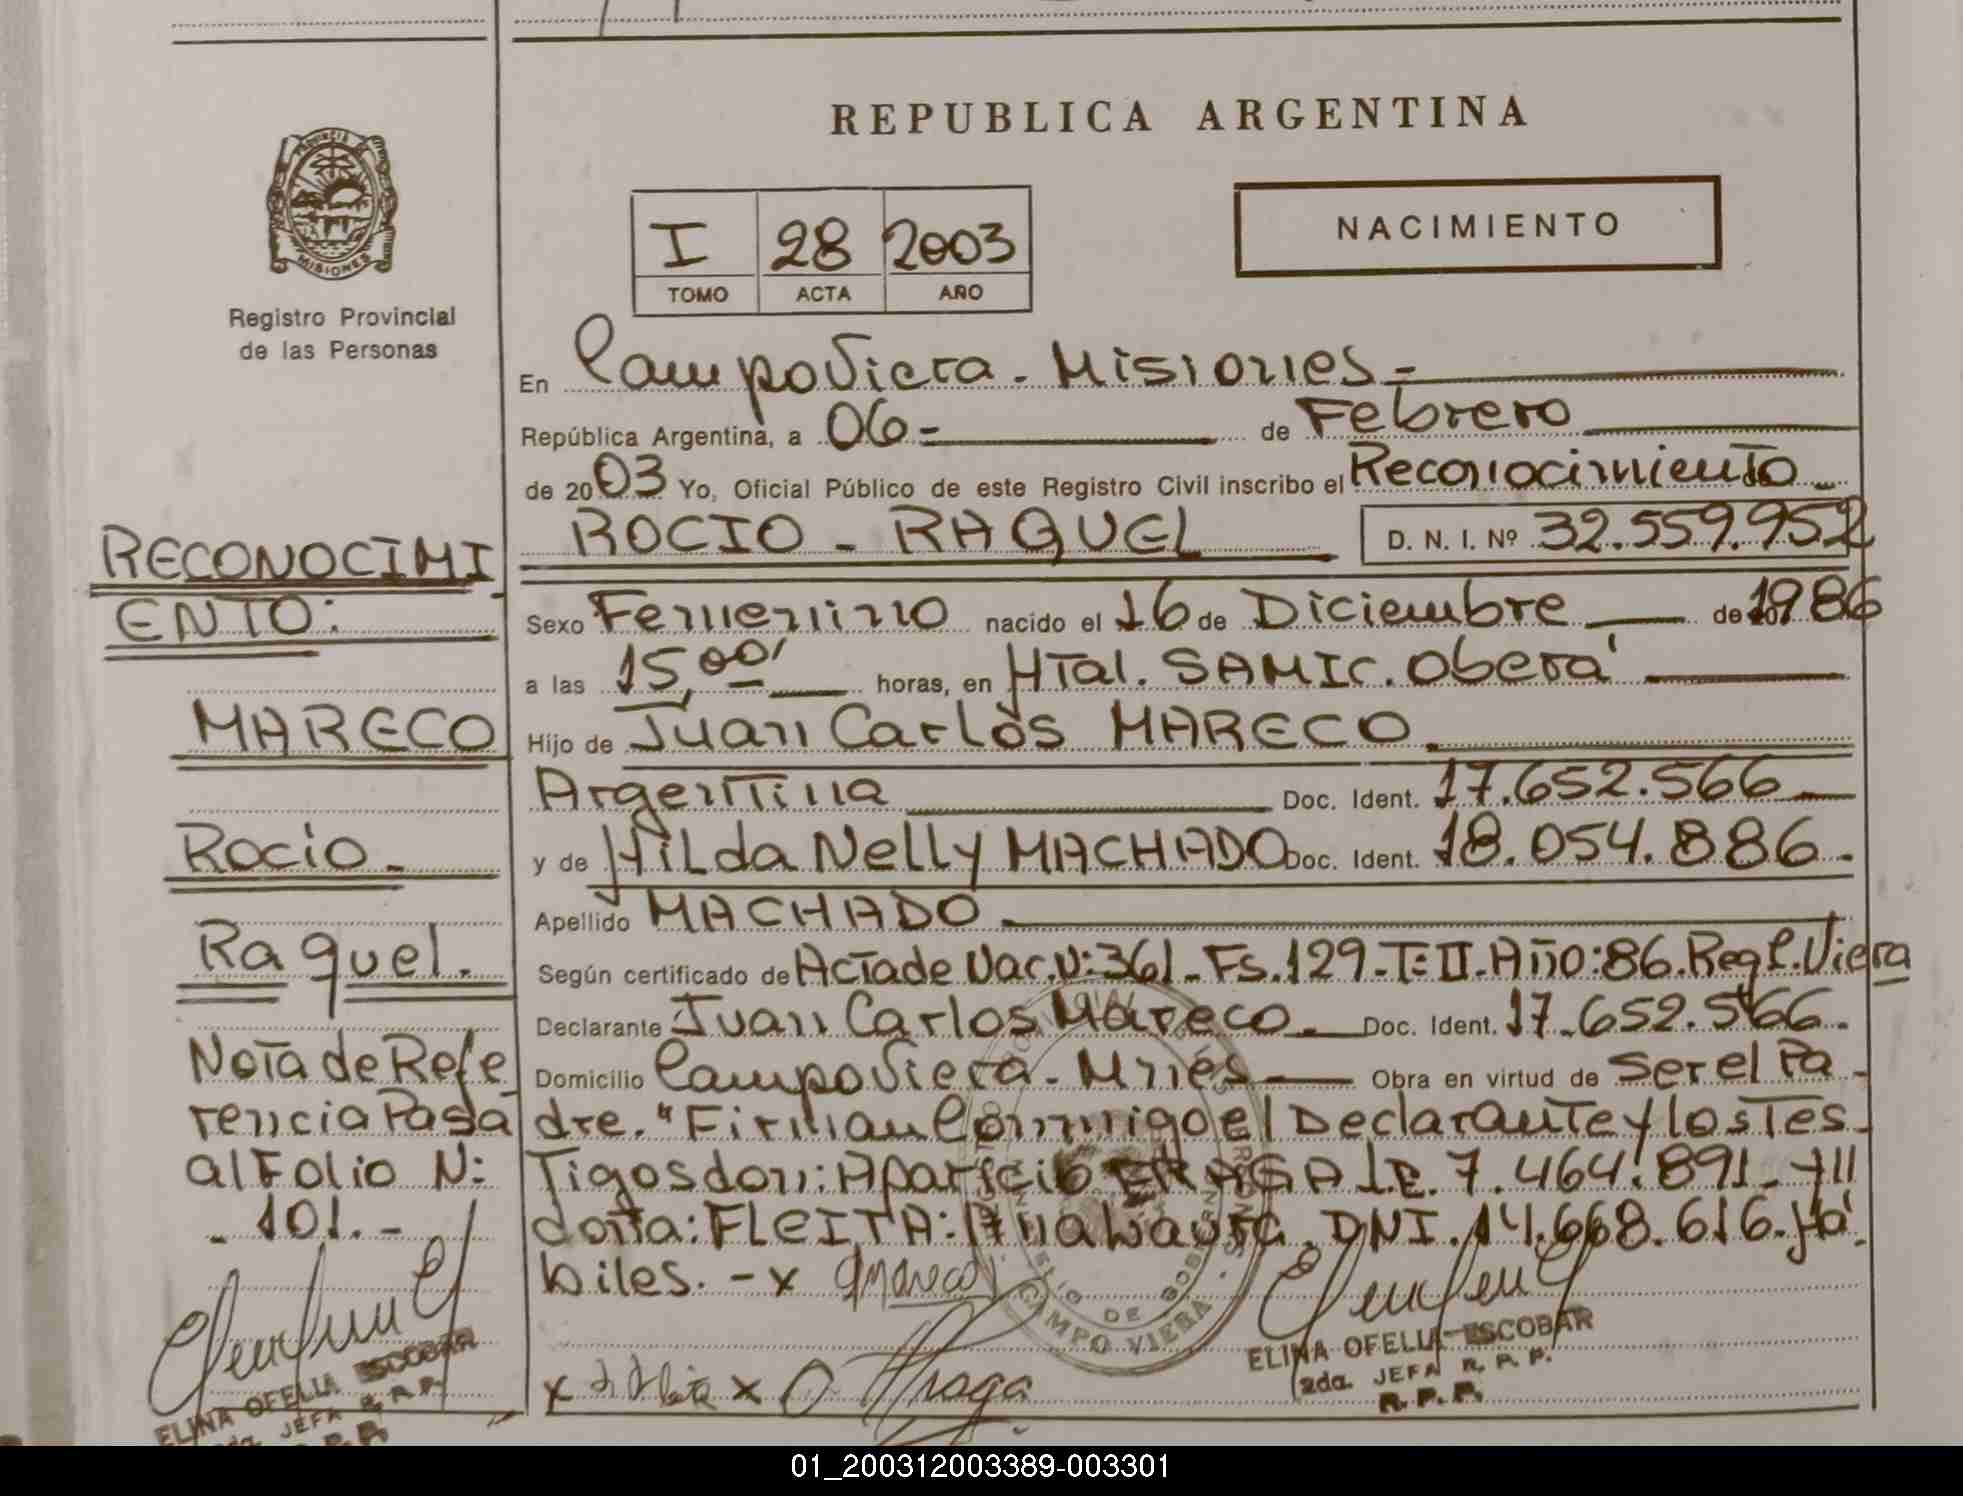 REPUBLICA ARGENTINA
PROVINCIA DE
MISIONES
Registro Provincial
de las Personas
NACIMIENTO
I 28 2003
TOMO ACTA AÑO
En Campo Viera - Misiones -
República Argentina, a 06 - de Febrero
de 2003 Yo, Oficial Público de este Registro Civil inscribo el Reconocimiento
ROCIO - RAQUEL D. N. I. Nº 32.559.952
Sexo Femenino nacido el 16 de Diciembre de 1986
a las 15,00' horas, en Htal. SAMIC. Oberá
Hijo de Juan Carlos MARECO
Argentina Doc. Ident. 17.652.566
y de Hilda Nelly MACHADO Doc. Ident. 18.054.886.
Apellido MACHADO
Según certificado de Acta de Nac. N: 361 - Fs. 129 - T: II. Año: 86. Reg C. Viera
Declarante Juan Carlos Mareco. Doc. Ident. 17.652.566.
Domicilio Campo Viera - Mnes Obra en virtud de Ser el Pa-
dre. "Firman Conmigo el Declarante y los Tes-
Tigos don: Aparicio FRAGA L.E. 7.464.891 - y
doña: FLEITA: Ana Laura. DNI. 14.668.616. Há-
biles. - x
x x Fraga
CAMPO VIERA
ELINA OFELIA ESCOBAR
2da. JEFA R. P. P.
R. P. P.
RECONOCIMI-
ENTO:
MARECO
Rocio -
Raquel.
Nota de Refe-
rencia Pasa
al Folio N:
- 101. -
ELINA OFELIA ESCOBAR
2da. JEFA R. P. P.
R. P. P.
01_200312003389-003301